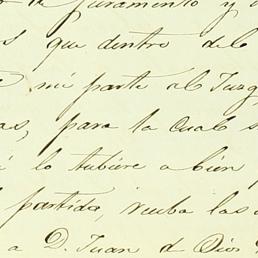 de juramento y
que dentro del
mi parte al Juzg
as, para la cual s
lo tubiere a bien
partida, reciba las
a D. Juan de Dios